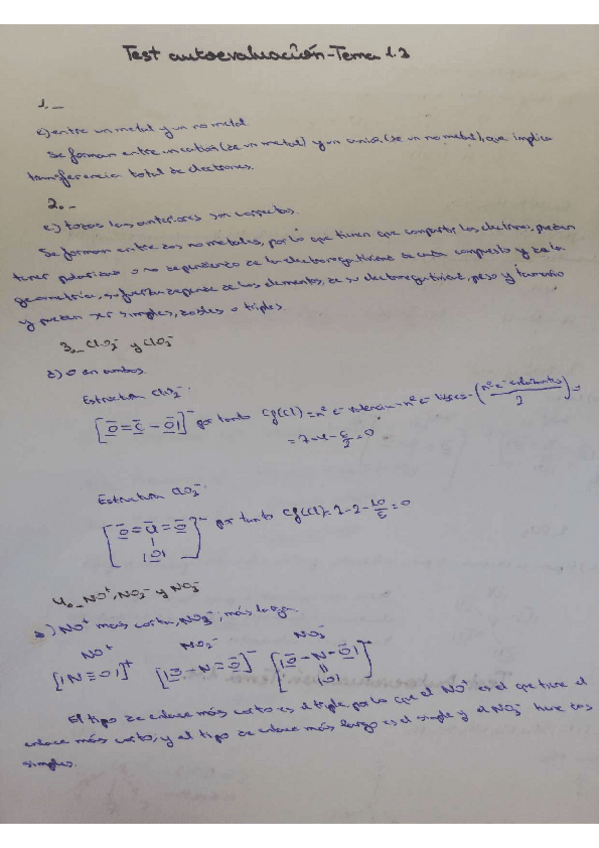 Test autoevaluación-Tema 1.2
1._
c) entre un metal y un no metal
Se forman entre un catión (de un metal) y un anión (de un no metal), que implica
transferencia total de electrones.
2._
e) todas las anteriores son correctas.
Se forman entre dos no metales, por lo que tienen que compartir los electrones, pueden
tener polaridad o no dependiendo de la electronegatividad de cada compuesto y de la
geometría, su fuerza depende de los elementos, de su electronegatividad, peso y tamaño
y pueden ser simples, dobles o triples.
3._ ClO₂⁻ y ClO₃⁻
d) 0 en ambos.
Estructura ClO₂⁻:
por tanto Cf(Cl) = nº e⁻ valencia - nº e⁻ libres - (nº e⁻ enlazantes / 2) =
= 7-4-6/2=0
Estructura ClO₃⁻:
por tanto Cf(Cl)=
4._ NO⁺, NO₂⁻ y NO₃⁻
) NO⁺ más corta, NO₃⁻, más larga.
NO⁺ NO₂⁻ NO₃⁻
[|N≡O|]⁺
El tipo de enlace más corto es el triple, por lo que el NO⁺ es el que tiene el
enlace más corto, y el tipo de enlace más largo es el simple y el NO₃⁻ tiene dos
simples.